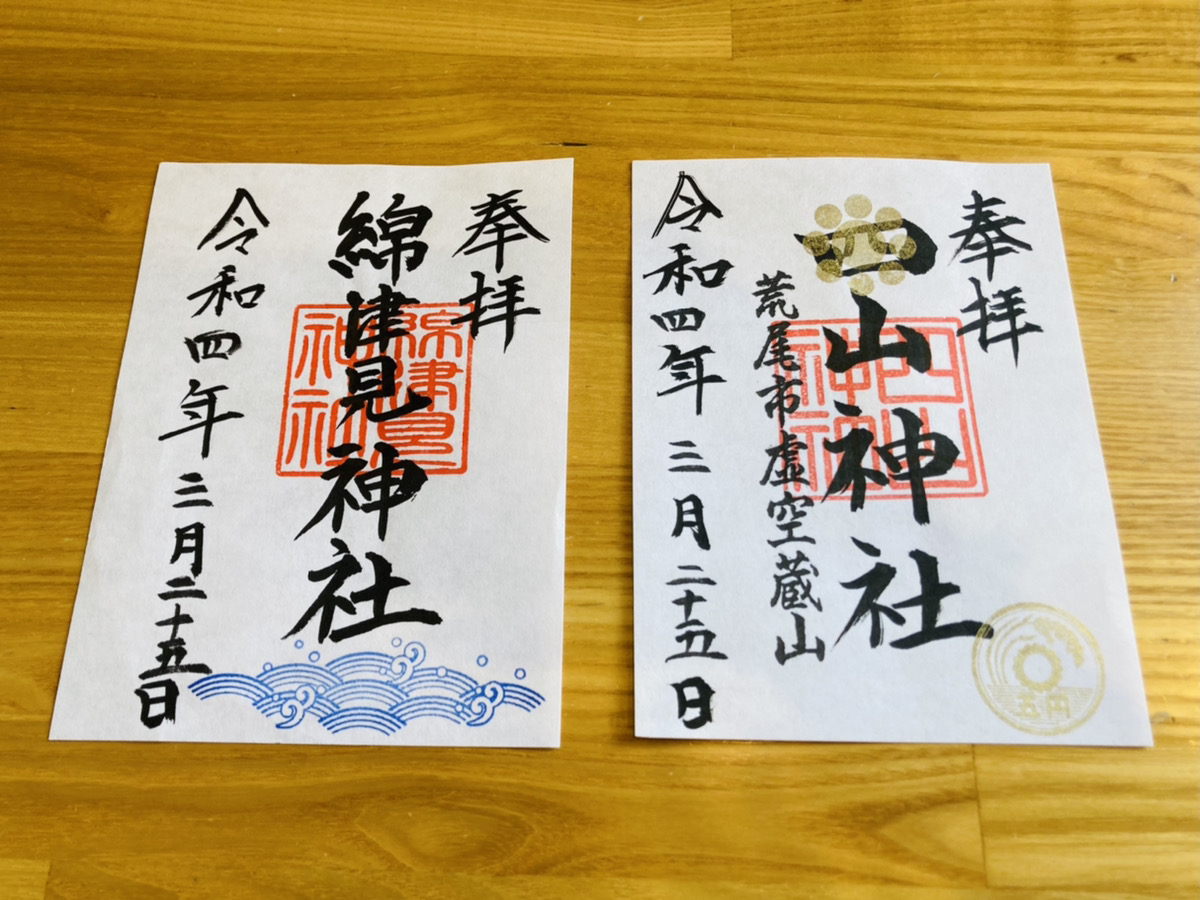 奉拝
綿津見神社
令和四年三月二十五日
綿津見
神社
奉拝
四山神社
荒尾市虚空蔵山
令和四年三月二十五日
五円